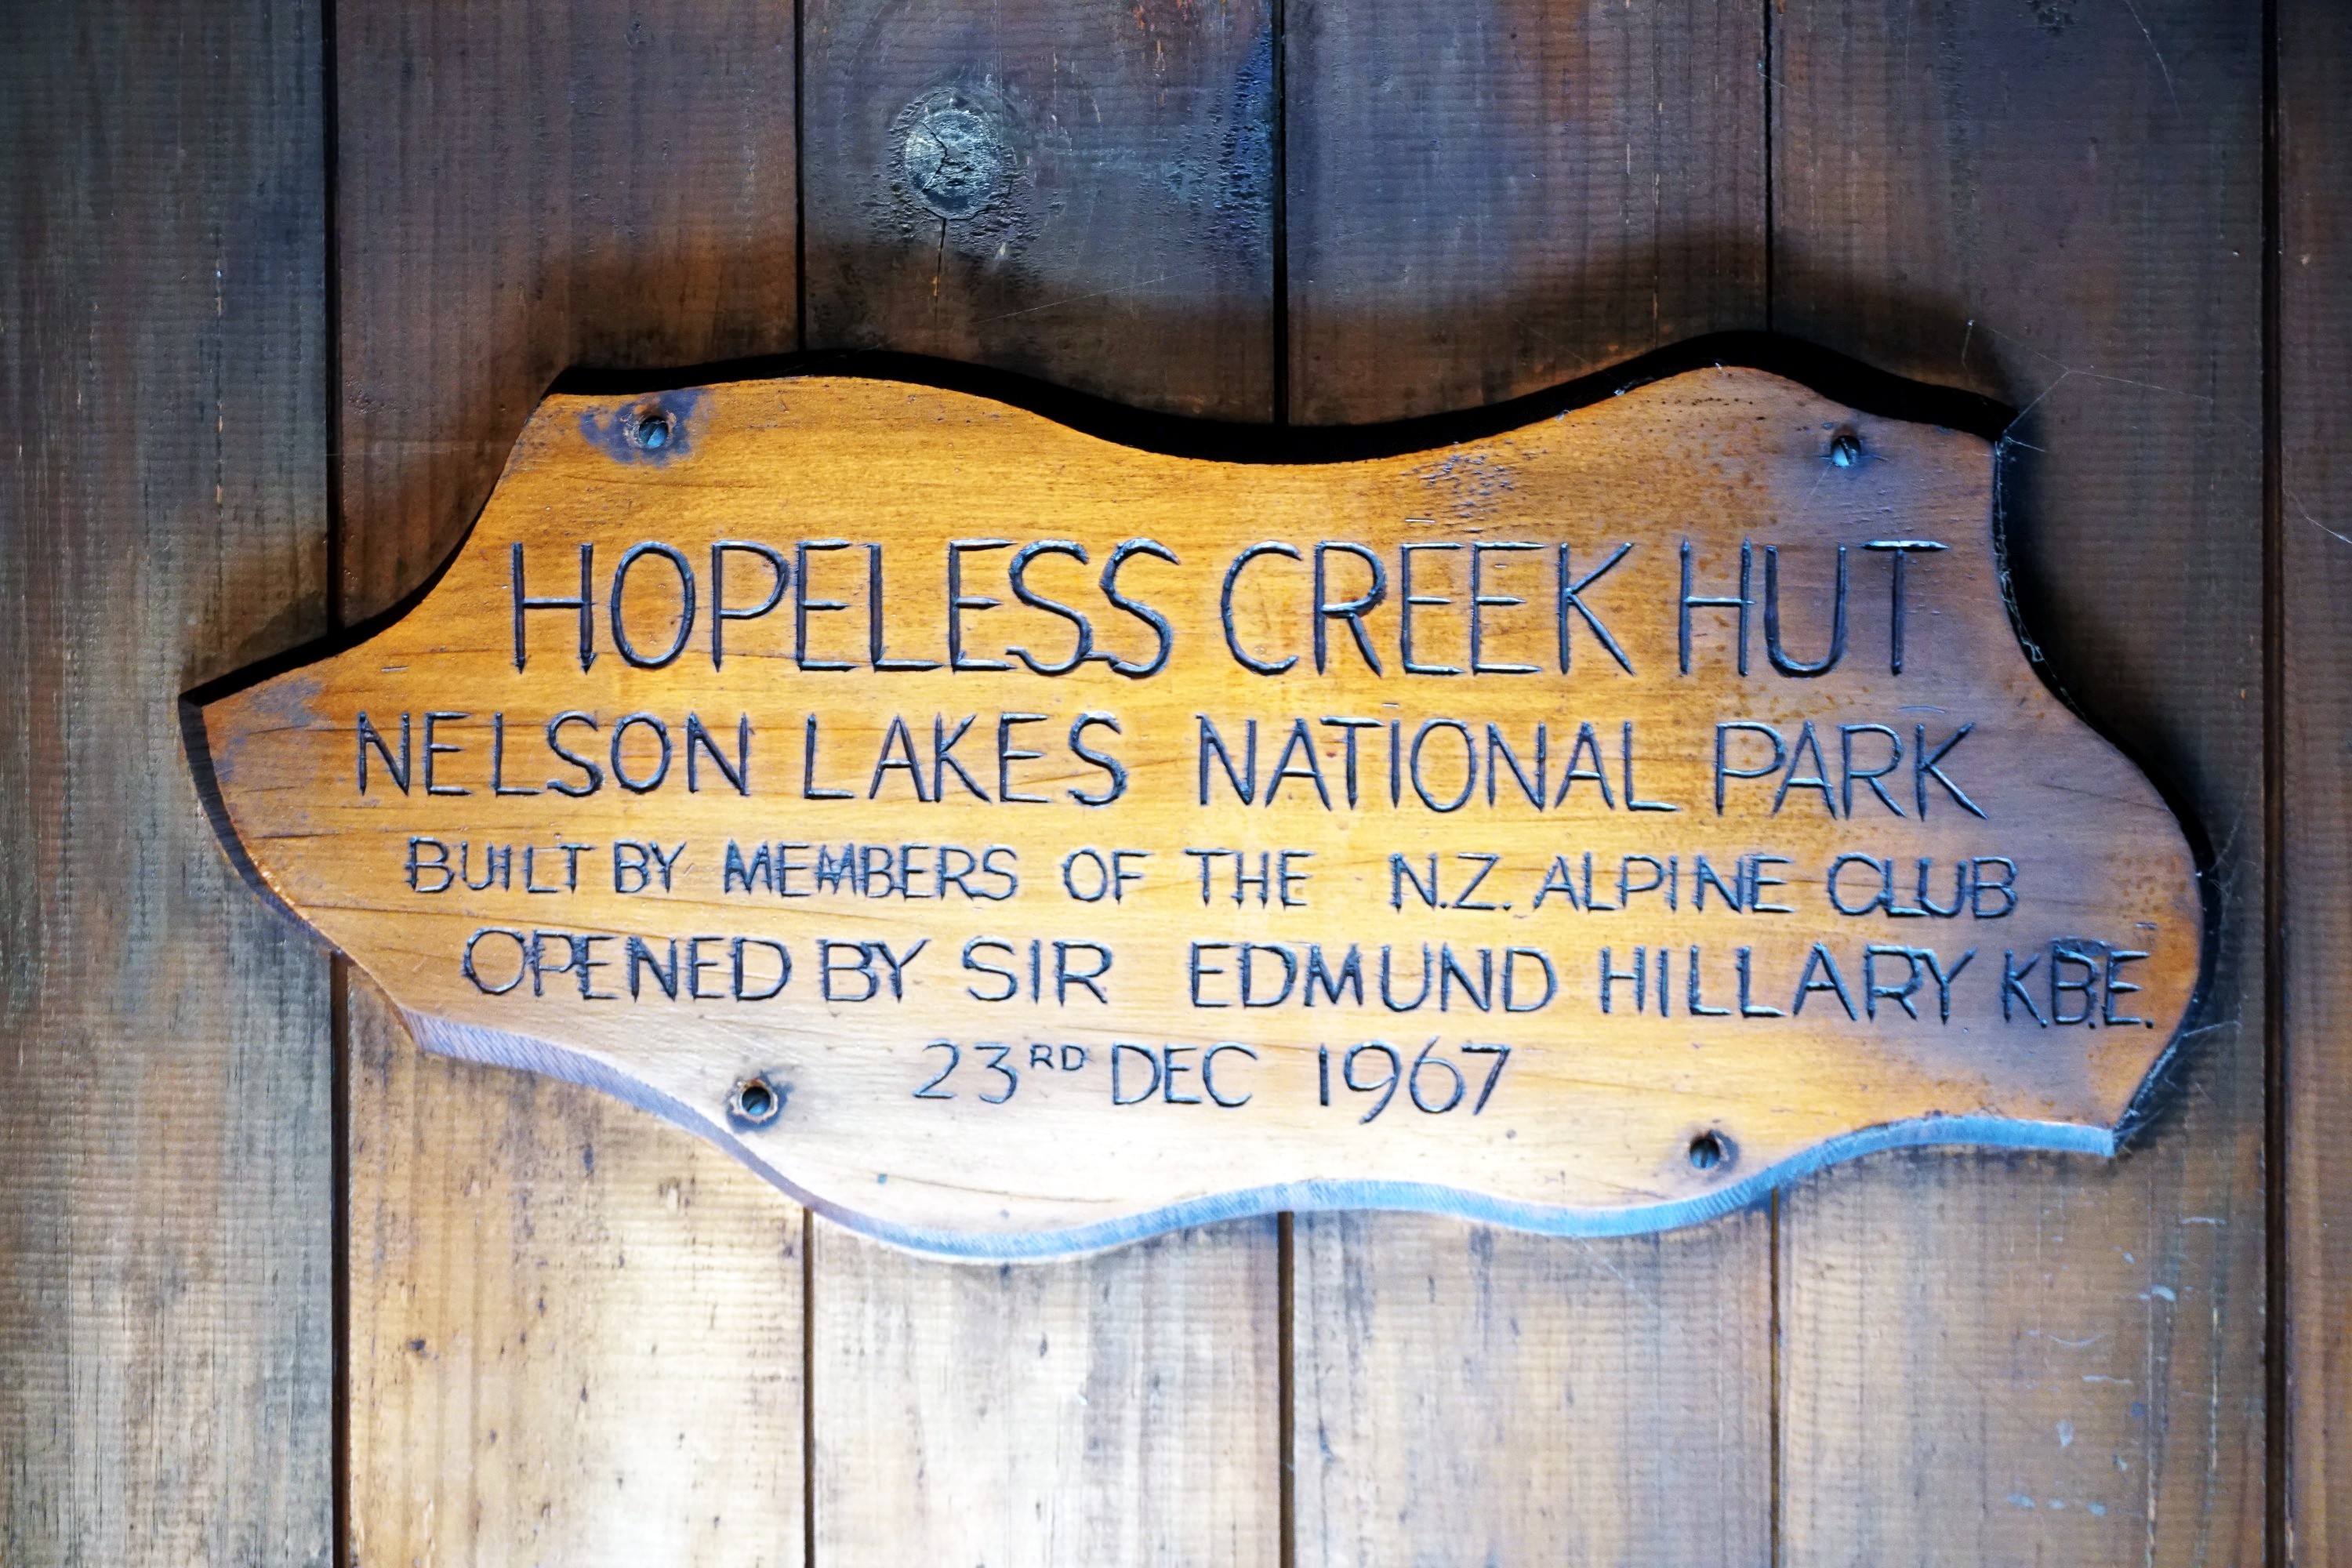 HOPELESS CREEK HUT
NELSON LAKES NATIONAL PARK
BUILT BY MEMBERS OF THE N.Z. ALPINE CLUB
OPENED BY SIR EDMUND HILLARY K.B.E.
23RD DEC 1967